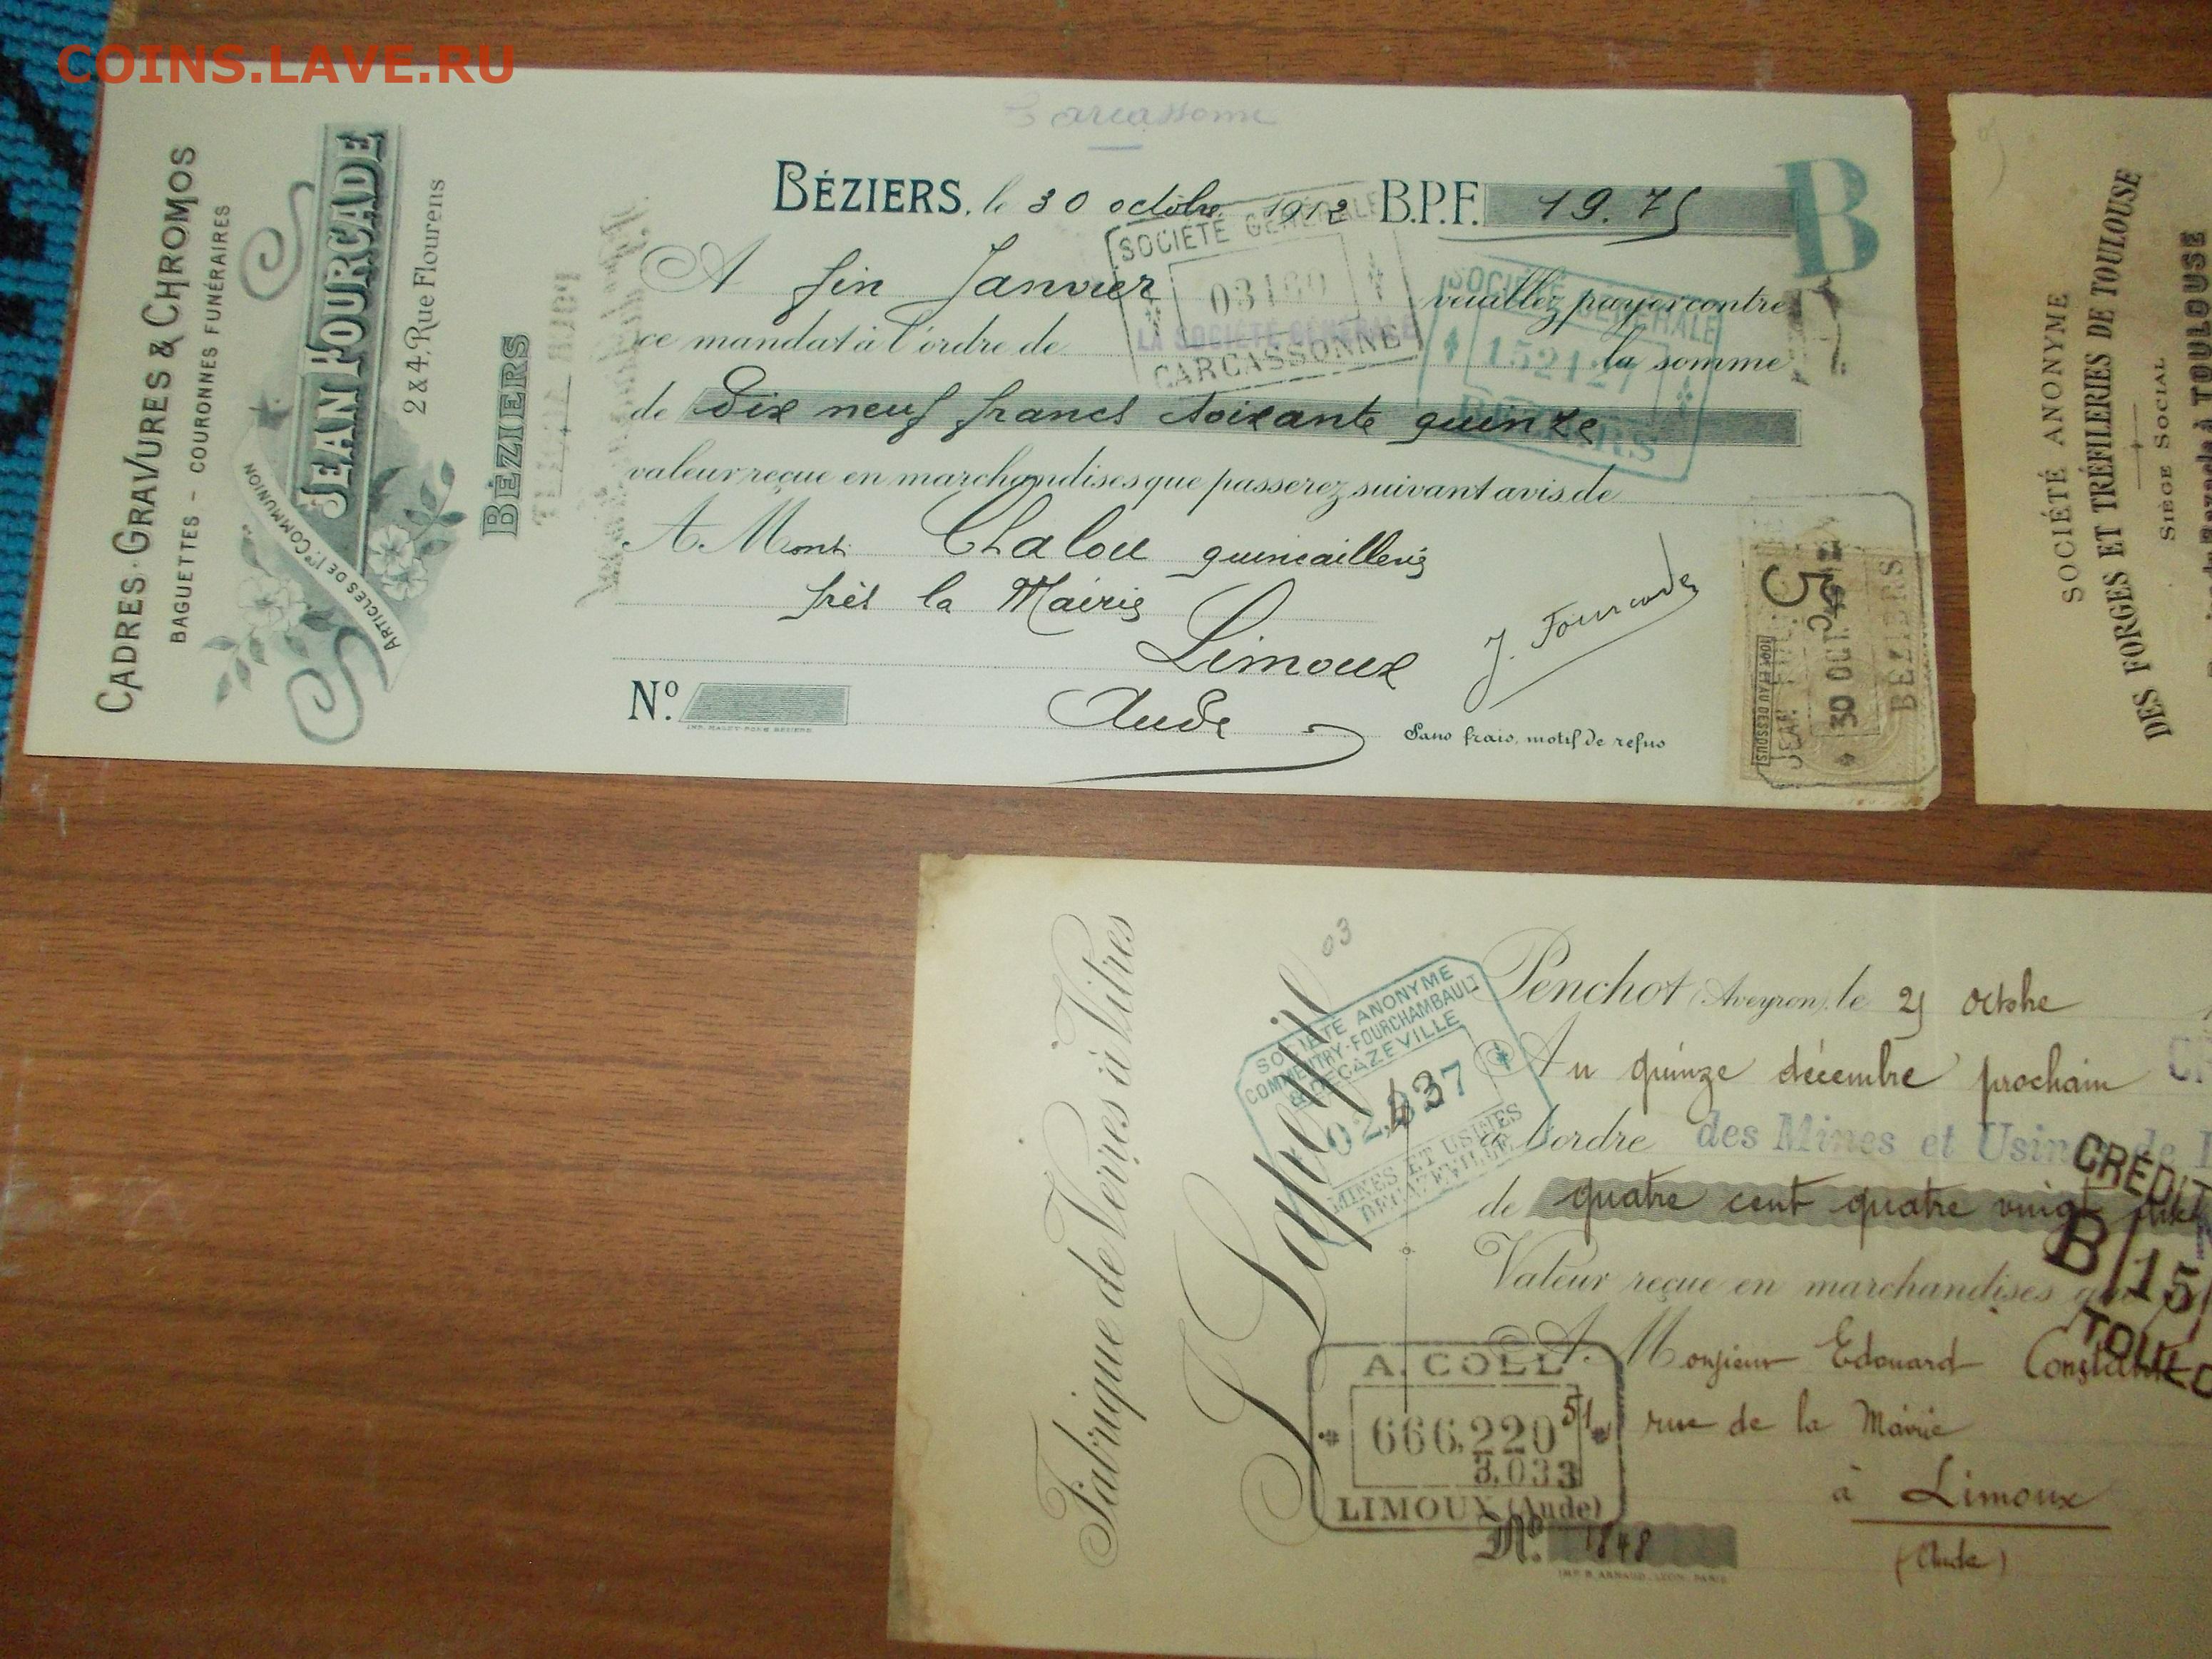 COINS.LAVE.RU
Carcassonne
CADRES·GRAVURES & CHROMOS
BAGUETTES - COURONNES FUNÉRAIRES
JEAN FOURCADE
ARTICLES DE 1re COMMUNION
2 & 4, Rue Flourens
BÉZIERS
BÉZIERS, le 30 octobre 1912 B.P.F. 19.75
B
A fin Janvier veuillez payer contre
ce mandat à l'ordre de LA SOCIÉTÉ GÉNÉRALE la somme
de Dix neuf francs soixante quinze
valeur reçue en marchandises que passerez suivant avis de
A Mont Chalou quincaillerie
près la Mairie
Limoux
Aude
J. Fourcade
No.
Sans frais, motif de refus
SOCIÉTÉ GÉNÉRALE
CARCASSONNE
SOCIÉTÉ GÉNÉRALE
152121
BÉZIERS
5c
100F ET AU DESSOUS
JEAN
30 OCT
BÉZIERS
SOCIÉTÉ ANONYME
DES FORGES ET TRÉFILERIES DE TOULOUSE
SIÈGE SOCIAL
à TOULOUSE
Fabrique de Verres à Vitres
03
SOCIÉTÉ ANONYME
COMMENTRY-FOURCHAMBAULT
& DECAZEVILLE
MINES ET USINES
DECAZEVILLE
Penchot (Aveyron), le 25 octobre
Au quinze décembre prochain
à l'ordre des Mines et Usines de
de quatre cent quatre vingt
Valeur reçue en marchandises
A Monsieur Edouard
rue de la Mairie
à Limoux
(Aude)
CRÉDIT
B/15/
A. COLL
666.220 51
3.033
LIMOUX (Aude)
No. 1848